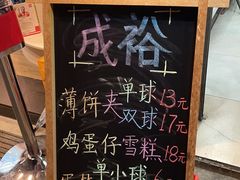 成裕
薄饼夹单球13元
双球17元
鸡蛋仔雪糕18元
单小球